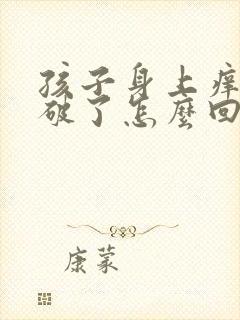 孩子身上痒
破了怎麽回
康蒙